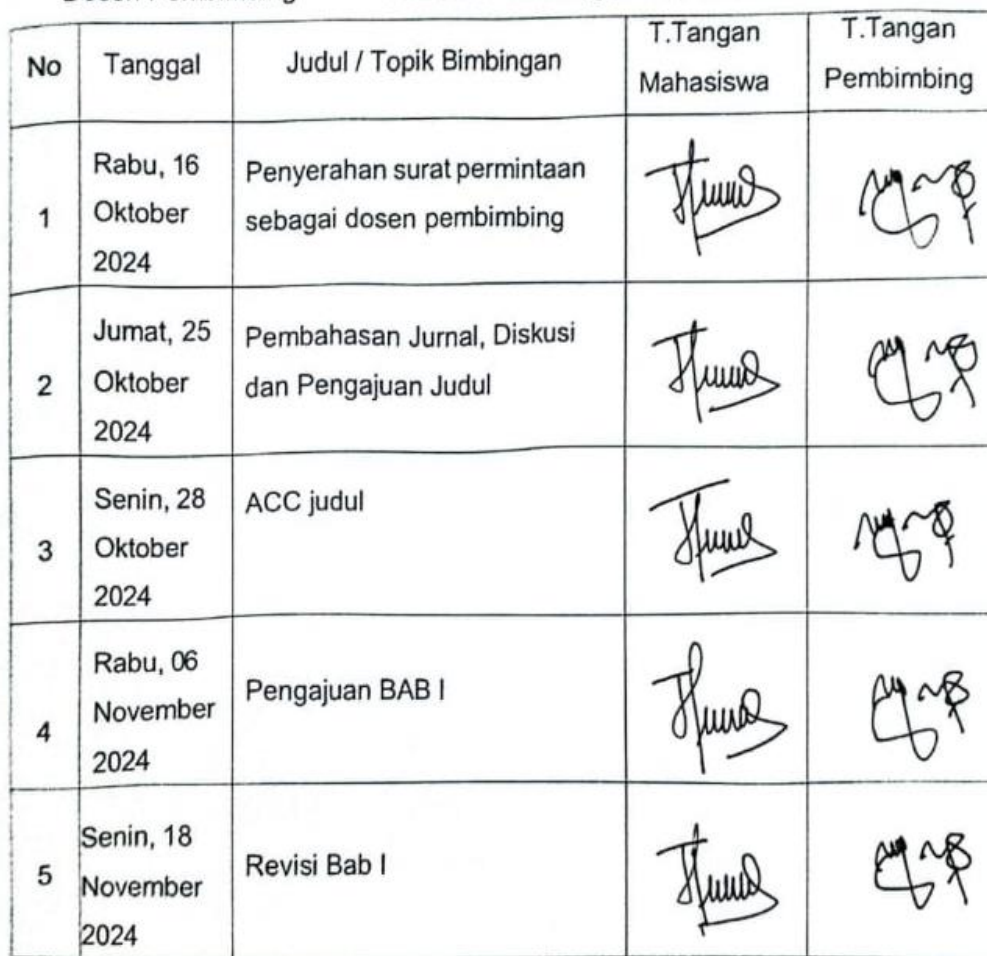 No
Tanggal
Judul / Topik Bimbingan
T.Tangan
Mahasiswa
T.Tangan
Pembimbing
1
Rabu, 16
Oktober
2024
Penyerahan surat permintaan
sebagai dosen pembimbing
2
Jumat, 25
Oktober
2024
Pembahasan Jurnal, Diskusi
dan Pengajuan Judul
3
Senin, 28
Oktober
2024
ACC judul
4
Rabu, 06
November
2024
Pengajuan BAB I
5
Senin, 18
November
2024
Revisi Bab I